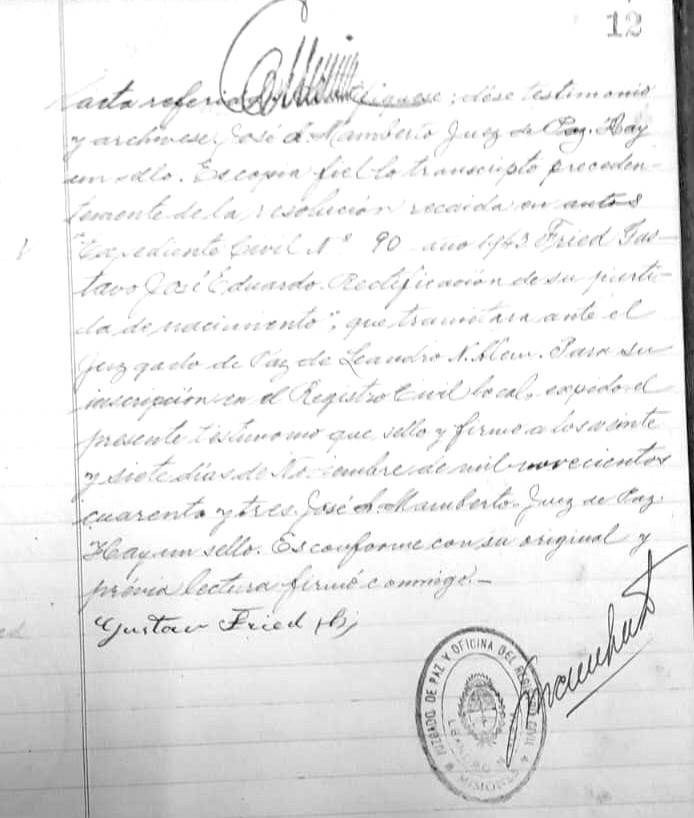 12
acta referida ... fíquese; dése testimonio
y archívese. José L. Mamberto Juez de Paz. Hay
un sello. Es copia fiel lo transcripto preceden-
temente de la resolución recaida en autos
"Expediente Civil Nº 90 año 1943 Fried Gus-
tavo José Eduardo. Rectificación de su parti-
da de nacimiento", que tramitara ante el
Juzgado de Paz de Leandro N. Alem. Para su
inscripción en el Registro Civil local, expido el
presente testimonio que sello y firmo a los veinte
y siete días de Noviembre de mil novecientos
cuarenta y tres. José L. Mamberto. Juez de Paz.
Hay un sello. Es conforme con su original y
prévia lectura firmó conmigo.-
Gustav Fried
JUZGADO DE PAZ Y OFICINA DEL REGISTRO CIVIL
MISIONES